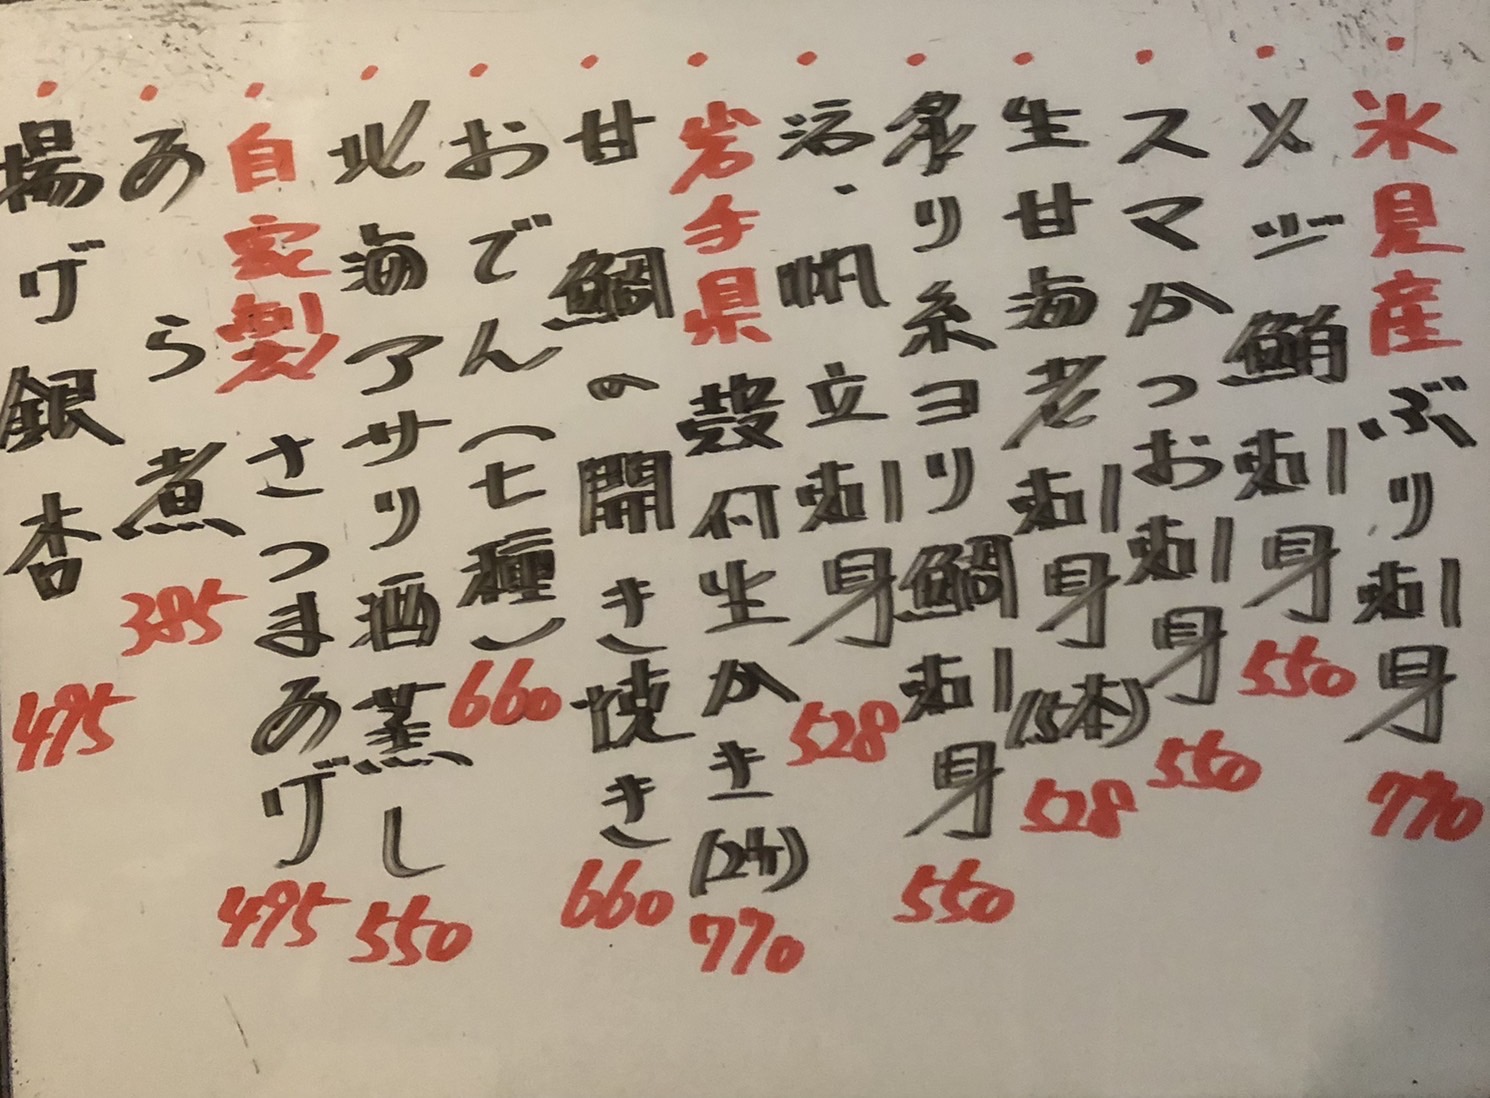 ・氷見産ぶり刺身 770
・メジ鮪刺身 550
・スマかつお刺身 550
・生甘海老刺身(5本) 528
・炙り糸ヨリ鯛刺身 550
・活・帆立刺身 528
・岩手県殻付生かき(2ケ) 770
・甘鯛の開き焼き 660
・おでん(七種) 660
・北海アサリ酒蒸し 550
・自家製さつまあげ 495
・あら煮 385
・揚げ銀杏 495